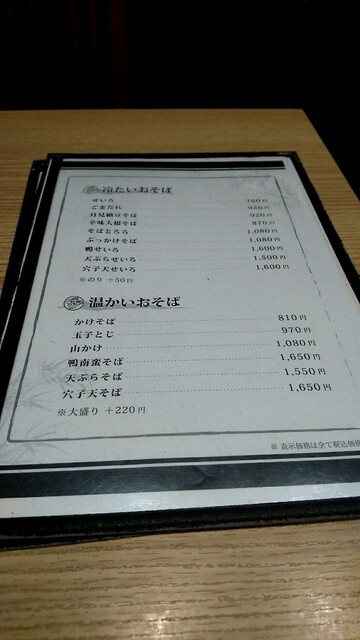 冷たいおそば
せいろ 760円
ごまだれ 920円
月見納豆そば 920円
辛味大根そば 870円
そばとろろ 1,080円
ぶっかけそば 1,080円
鴨せいろ 1,600円
天ぷらせいろ 1,500円
穴子天せいろ 1,600円
※のり +50円
温かいおそば
かけそば 810円
玉子とじ 970円
山かけ 1,080円
鴨南蛮そば 1,650円
天ぷらそば 1,550円
穴子天そば 1,650円
※大盛り +220円
※ 表示価格は全て税込価格